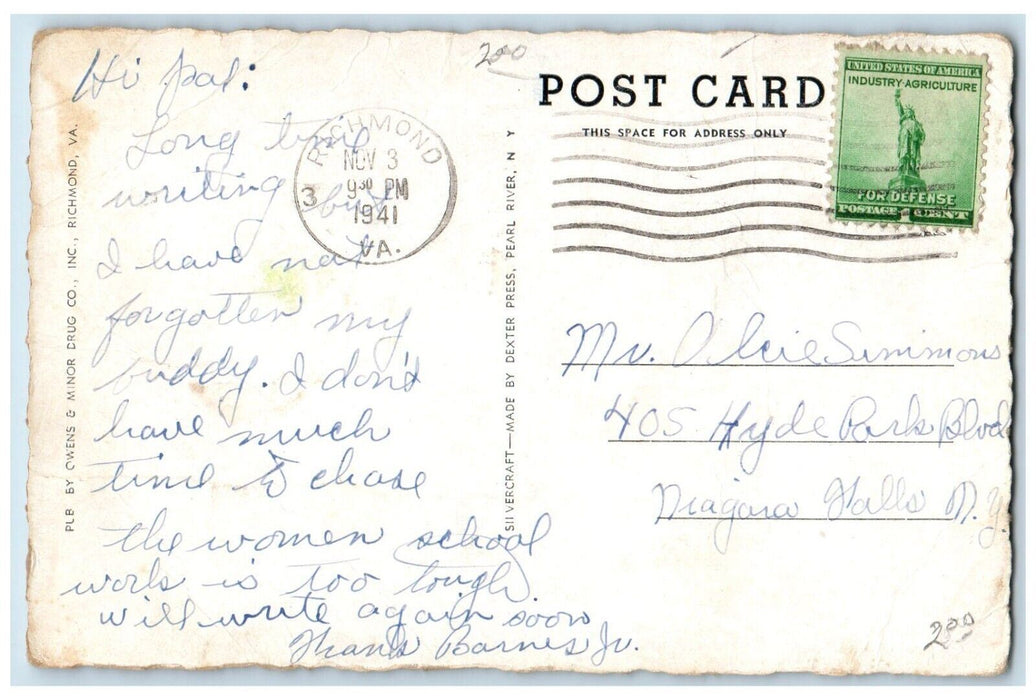 200
Hi Pal:
Long time
writing but
I have not
forgotten my
buddy. I don't
have much
time to chase
the women school
work is too tough
will write again soon
Barnes Jr.
RICHMOND
NOV 3
9 30 PM
1941
VA.
3
PUB BY OWENS & MINOR DRUG CO., INC., RICHMOND, VA.
SILVERCRAFT—MADE BY DEXTER PRESS, PEARL RIVER, N Y
POST CARD
THIS SPACE FOR ADDRESS ONLY
UNITED STATES OF AMERICA
INDUSTRY AGRICULTURE
FOR DEFENSE
POSTAGE 1 CENT
Mr. Simmons
405 Hyde Park Blvd
Niagara Falls N.Y.
200